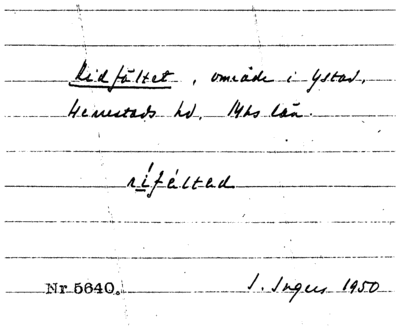 Ridfältet, område i Ystad,
Herrestads hd. Mhs län.
rífáltad
Nr 5640.
I. Ingers 1950